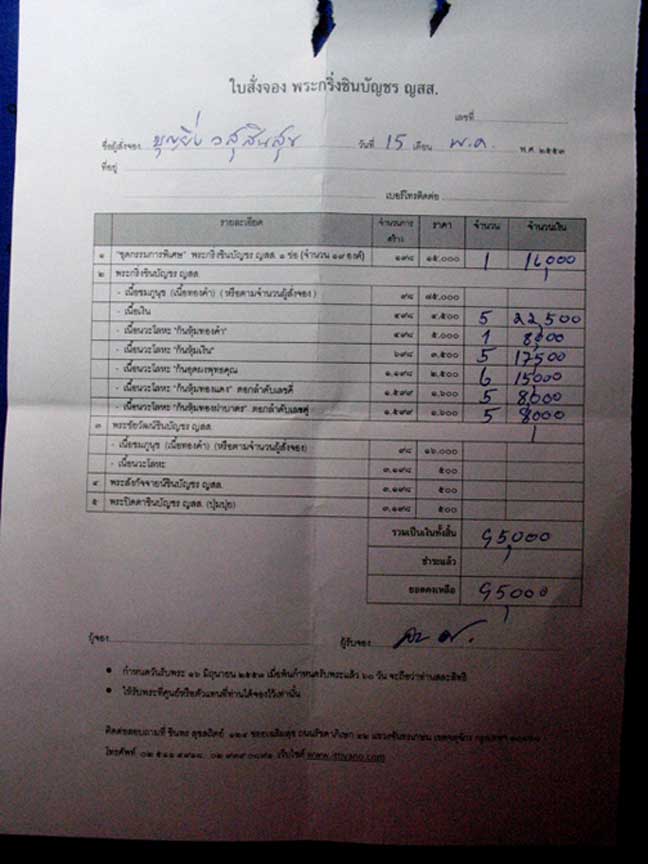 ใบสั่งจอง พระกริ่งชินบัญชร ญสส.
เลขที่
ชื่อผู้สั่งจอง บุญยิ่ง วสุสินสุข วันที่ 15 เดือน พ.ค. พ.ศ. ๒๕๕๓
ที่อยู่
เบอร์โทรติดต่อ
รายละเอียด จำนวนการสร้าง ราคา จำนวน จำนวนเงิน
๑ "ชุดกรรมการพิเศษ" พระกริ่งชินบัญชร ญสส. ๑ ช่อ (จำนวน ๑๙ องค์) ๑๙๘ ๑๕,๐๐๐ 1
๒ พระกริ่งชินบัญชร ญสส.
- เนื้อชมภูนุช (เนื้อทองคำ) (หรือตามจำนวนผู้สั่งจอง) ๙๘ ๘๕,๐๐๐
- เนื้อเงิน ๔๙๘ ๔,๕๐๐ 5 22,500
- เนื้อนวะโลหะ "ก้นหุ้มทองคำ" ๔๙๘ ๘,๐๐๐ 1 8,000
- เนื้อนวะโลหะ "ก้นหุ้มเงิน" ๖๙๘ ๓,๕๐๐ 5 17,500
- เนื้อนวะโลหะ "ก้นอุดผงพุทธคุณ" ๑,๑๙๘ ๒,๕๐๐ 6 15,000
- เนื้อนวะโลหะ "ก้นหุ้มทองแดง" ตอกลำดับเลขคี่ ๑,๕๙๙ ๑,๖๐๐ 5 8,000
- เนื้อนวะโลหะ "ก้นหุ้มทองฝาบาตร" ตอกลำดับเลขคู่ ๑,๕๙๙ ๑,๖๐๐ 5 8,000
๓ พระชัยวัฒน์ชินบัญชร ญสส.
- เนื้อชมภูนุช (เนื้อทองคำ) (หรือตามจำนวนผู้สั่งจอง) ๙๘ ๑๖,๐๐๐
- เนื้อนวะโลหะ ๓,๑๙๘ ๕๐๐
๔ พระสังกัจจายน์ชินบัญชร ญสส. ๓,๑๙๘ ๕๐๐
๕ พระปิดตาชินบัญชร ญสส. (ปุ้มปุ้ย) ๓,๑๙๘ ๕๐๐
รวมเป็นเงินทั้งสิ้น 95,000
ชำระแล้ว
ยอดคงเหลือ 95,000
ผู้จอง ผู้รับจอง
• กำหนดวันรับพระ ๑๖ มิถุนายน ๒๕๕๓ เมื่อพ้นกำหนดรับพระแล้ว ๖๐ วัน จะถือว่าท่านสละสิทธิ
• ให้รับพระที่ศูนย์หรือตัวแทนที่ท่านได้จองไว้เท่านั้น
ติดต่อสอบถามที่ ชินพร สุขสถิตย์ ๑๒๔ ซอยเฉลิมสุข ถนนรัชดาภิเษก ๔๒ แขวงจันทรเกษม เขตจตุจักร กรุงเทพฯ
โทรศัพท์ เว็บไซต์ www.ittiyano.com